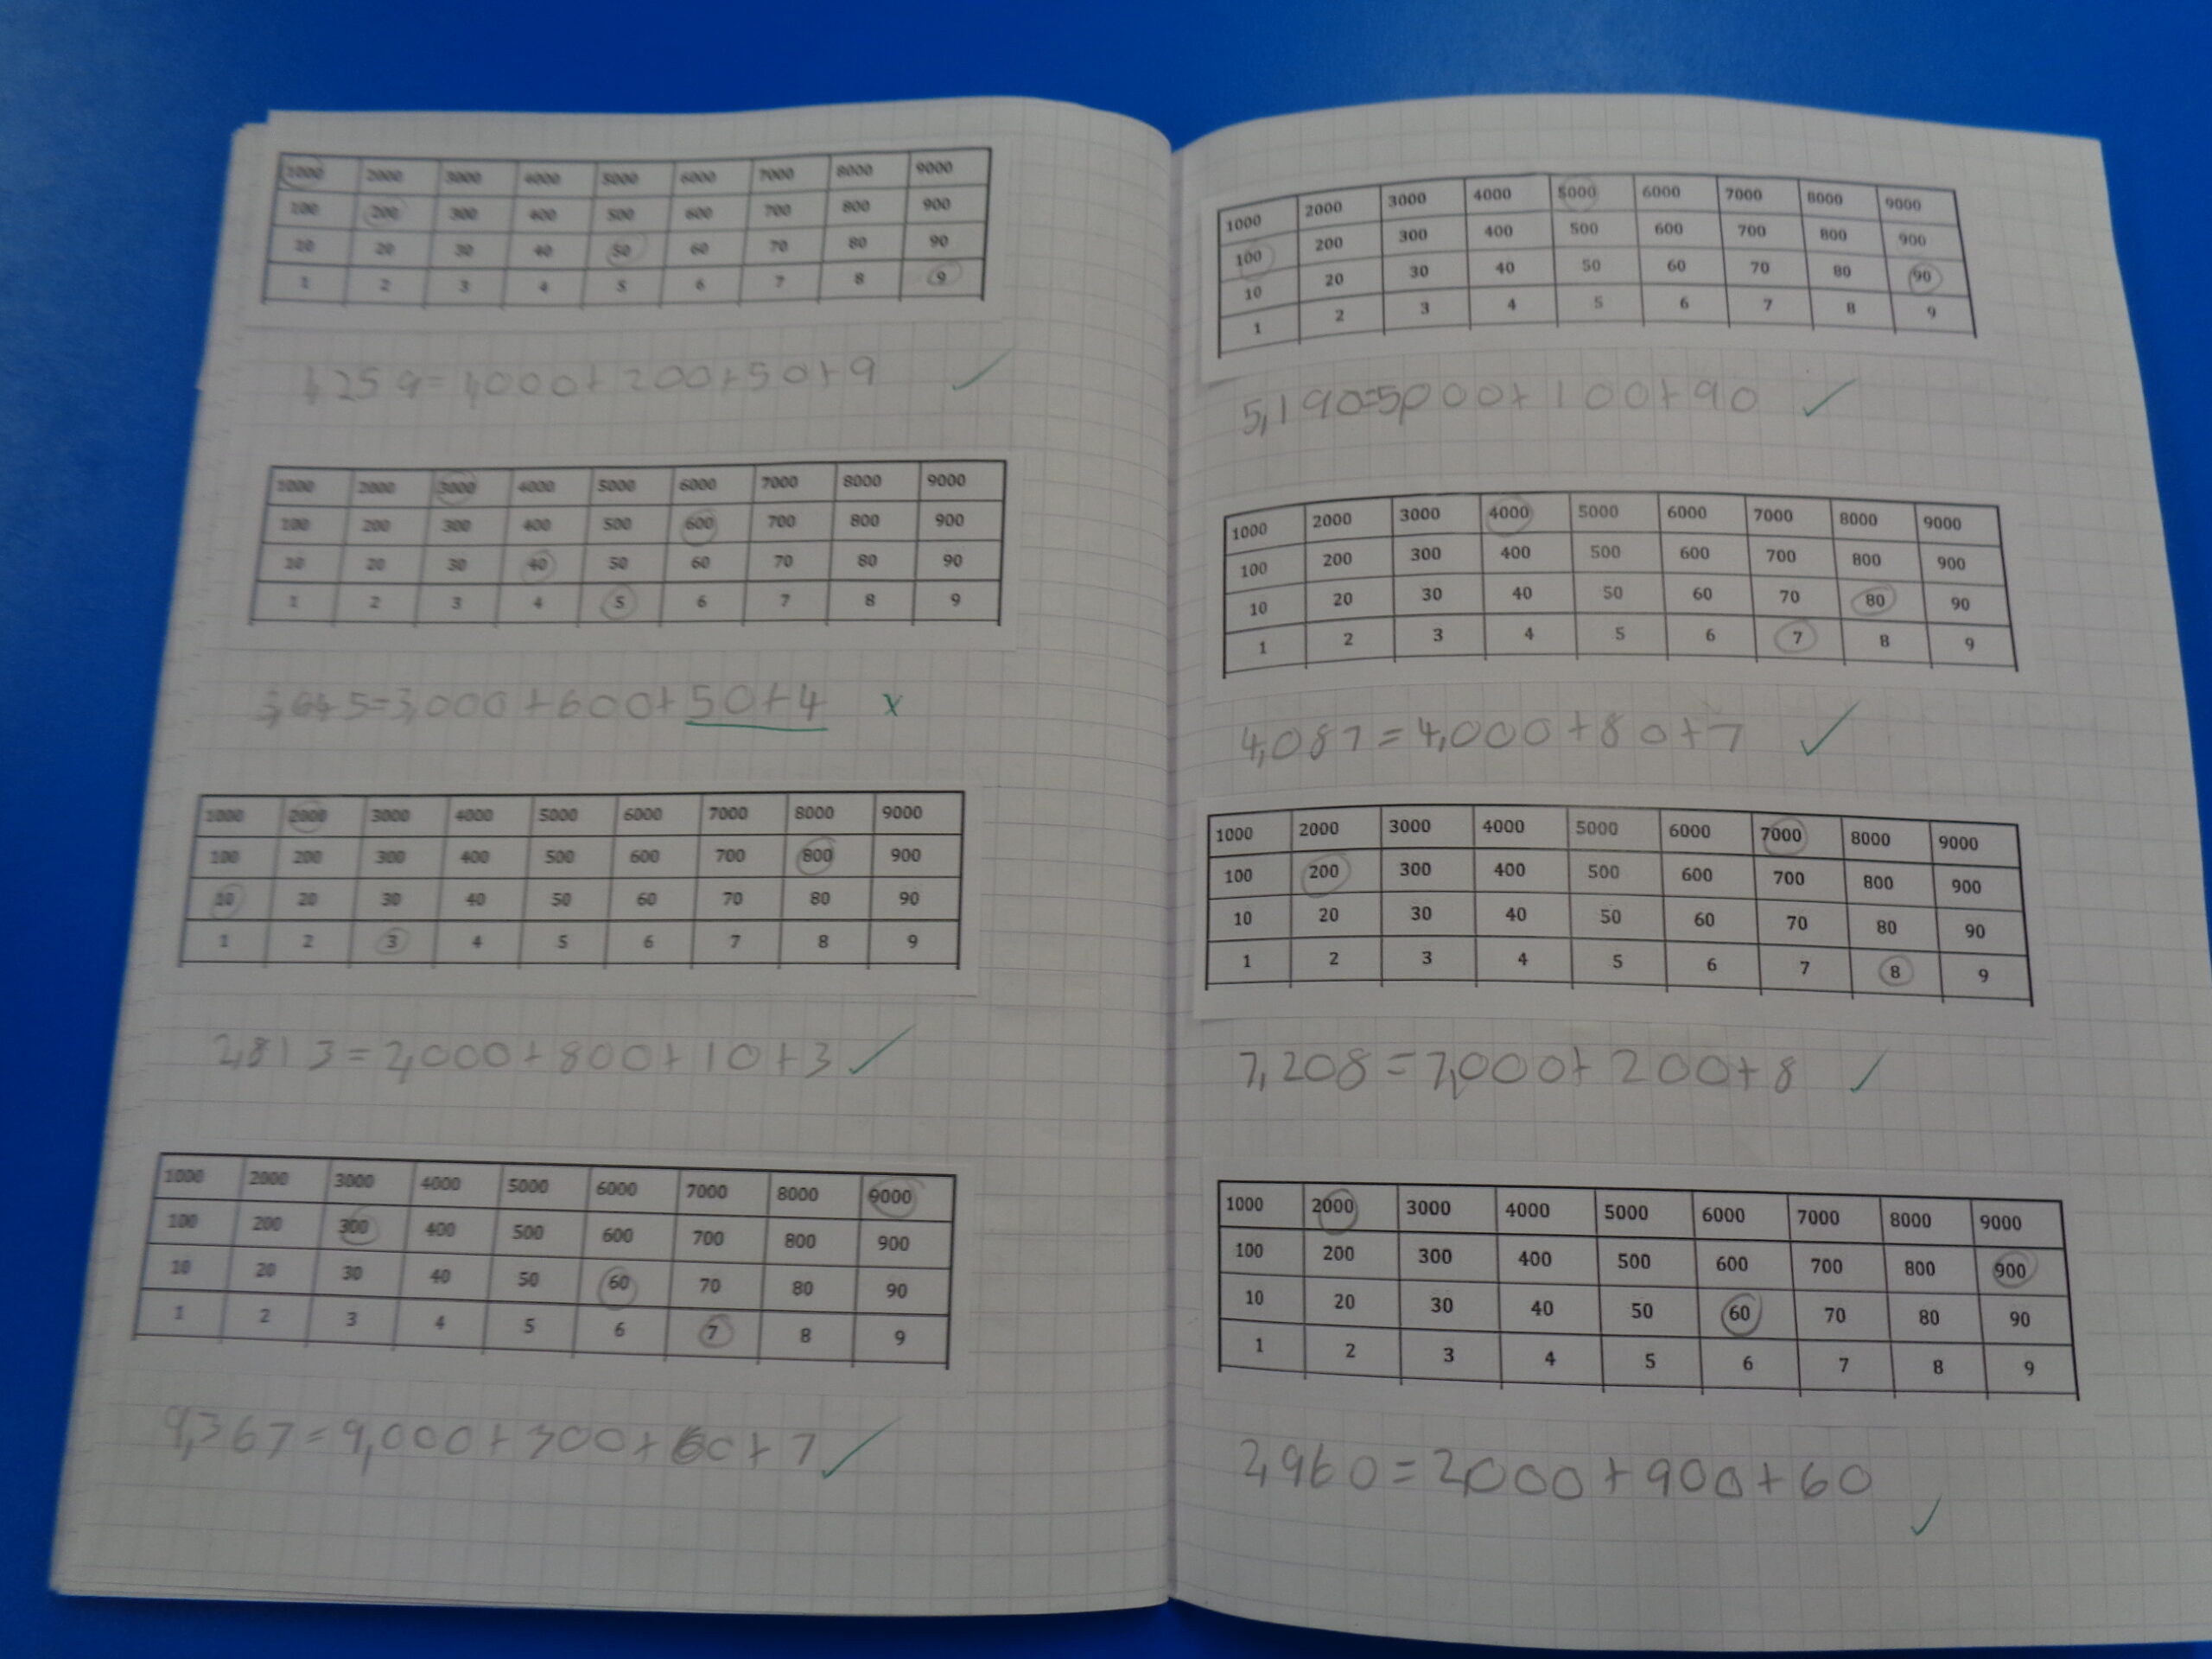 1000 2000 3000 4000 5000 6000 7000 8000 9000
100 200 300 400 500 600 700 800 900
10 20 30 40 50 60 70 80 90
1 2 3 4 5 6 7 8 9
1,259=1,000+200+50+9
1000 2000 3000 4000 5000 6000 7000 8000 9000
100 200 300 400 500 600 700 800 900
10 20 30 40 50 60 70 80 90
1 2 3 4 5 6 7 8 9
3,645=3,000+600+50+4 x
1000 2000 3000 4000 5000 6000 7000 8000 9000
100 200 300 400 500 600 700 800 900
10 20 30 40 50 60 70 80 90
1 2 3 4 5 6 7 8 9
2,813=2,000+800+10+3
1000 2000 3000 4000 5000 6000 7000 8000 9000
100 200 300 400 500 600 700 800 900
10 20 30 40 50 60 70 80 90
1 2 3 4 5 6 7 8 9
9,367=9,000+300+60+7
1000 2000 3000 4000 5000 6000 7000 8000 9000
100 200 300 400 500 600 700 800 900
10 20 30 40 50 60 70 80 90
1 2 3 4 5 6 7 8 9
5,190=5,000+100+90
1000 2000 3000 4000 5000 6000 7000 8000 9000
100 200 300 400 500 600 700 800 900
10 20 30 40 50 60 70 80 90
1 2 3 4 5 6 7 8 9
4,087=4,000+80+7
1000 2000 3000 4000 5000 6000 7000 8000 9000
100 200 300 400 500 600 700 800 900
10 20 30 40 50 60 70 80 90
1 2 3 4 5 6 7 8 9
7,208=7,000+200+8
1000 2000 3000 4000 5000 6000 7000 8000 9000
100 200 300 400 500 600 700 800 900
10 20 30 40 50 60 70 80 90
1 2 3 4 5 6 7 8 9
2,960=2,000+900+60